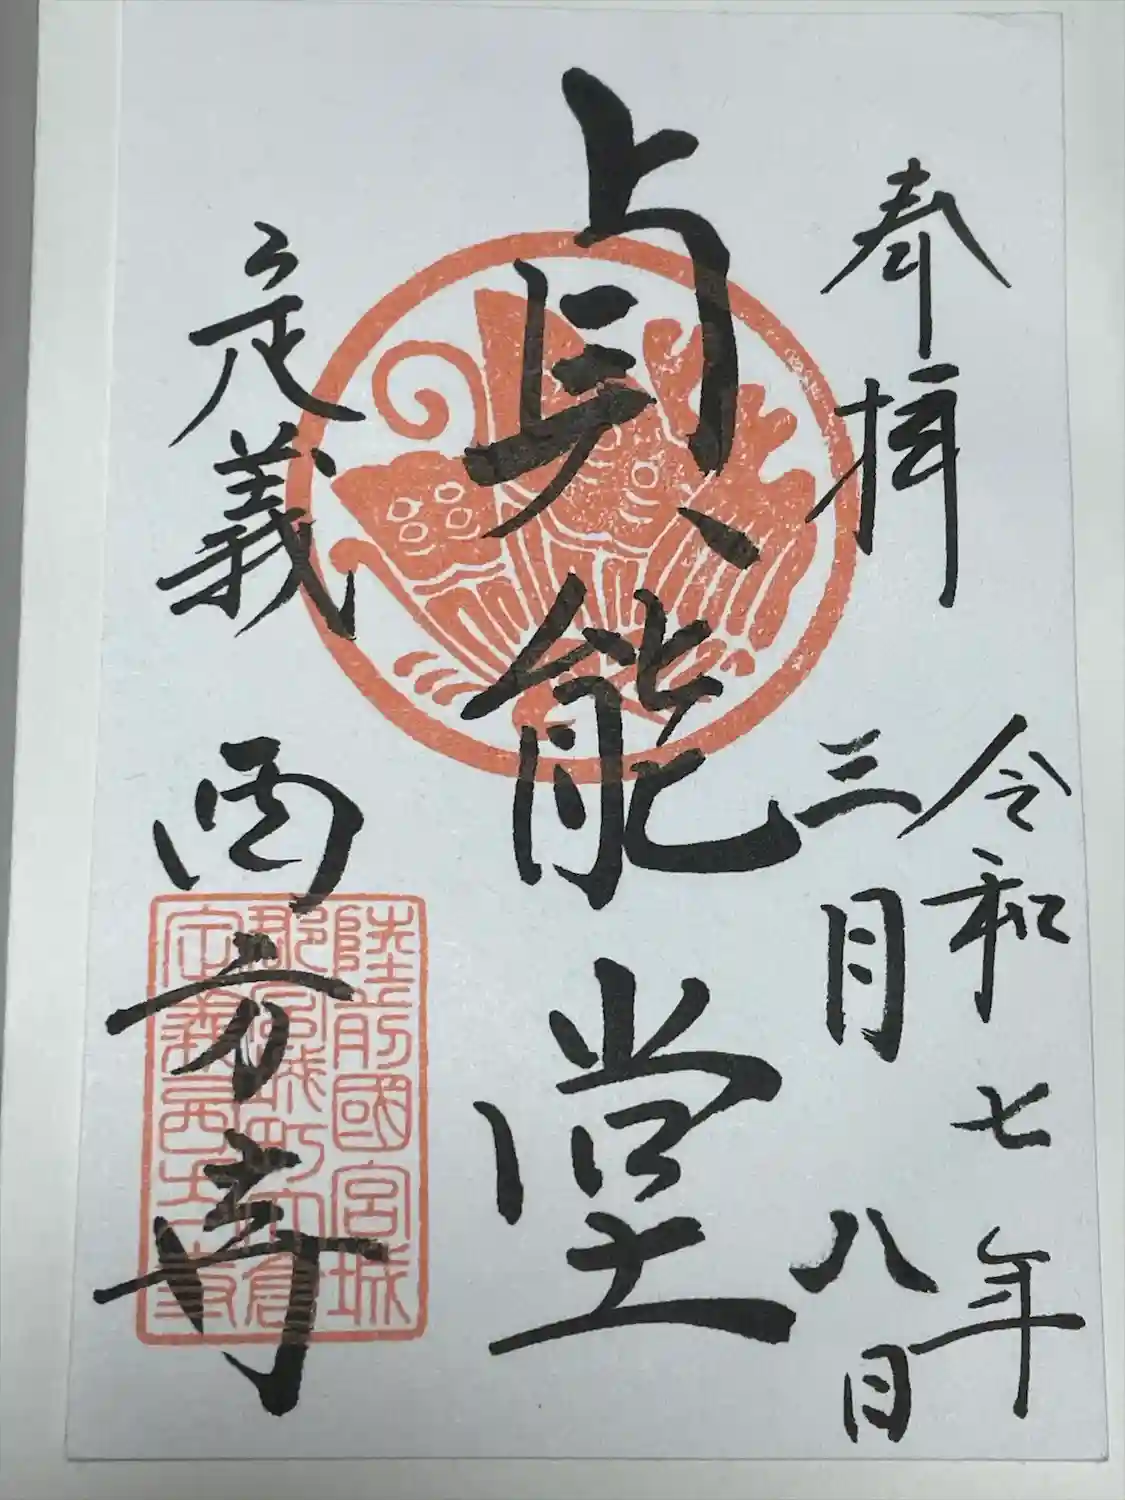 奉拝
令和七年
三月八日
貞能堂
定義
西方寺
陸前國宮城
郡宮城町大倉
定義西方寺